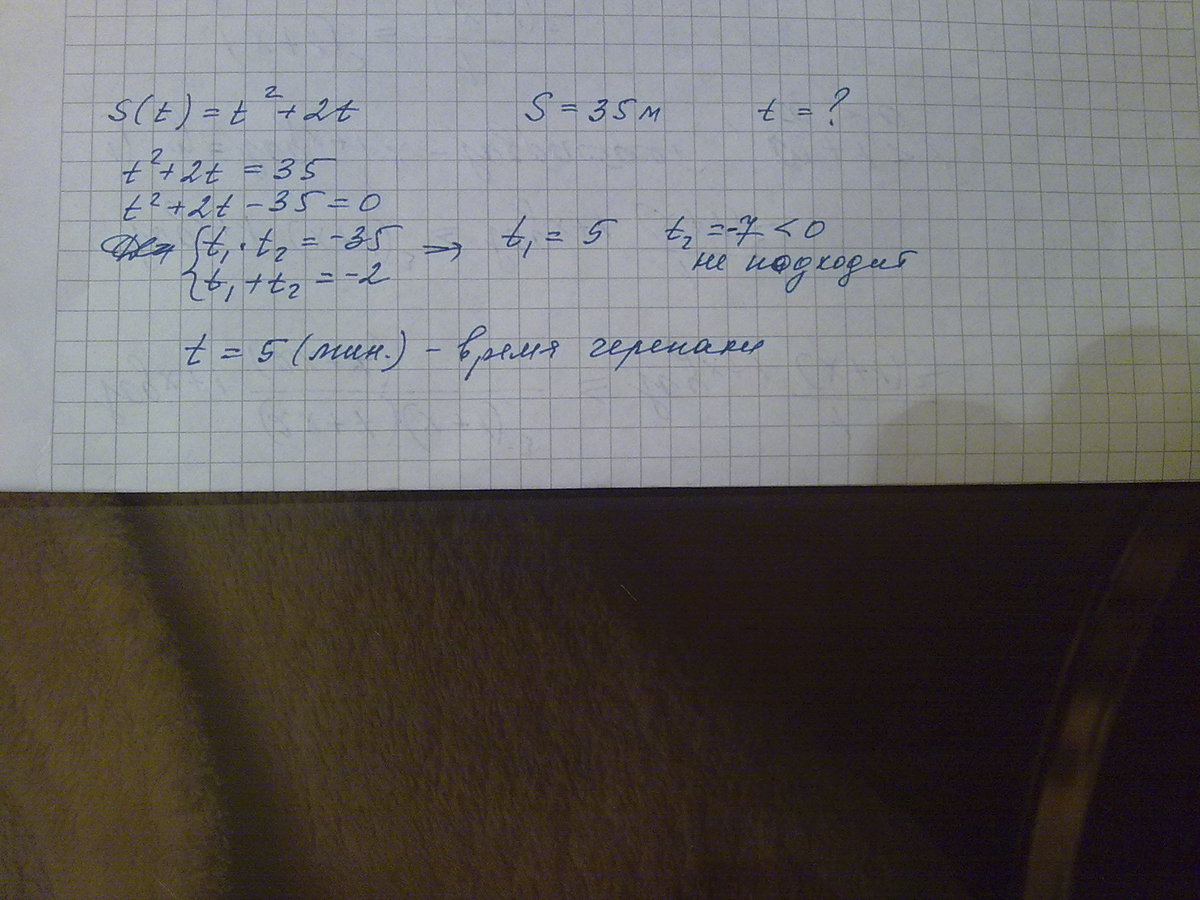 S(t) = t² + 2t S = 35 м t = ?
t² + 2t = 35
t² + 2t - 35 = 0
{ t₁ · t₂ = -35 → t₁ = 5 t₂ = -7 < 0
t₁ + t₂ = -2 не подходит
t = 5 (мин.) - время черепахи